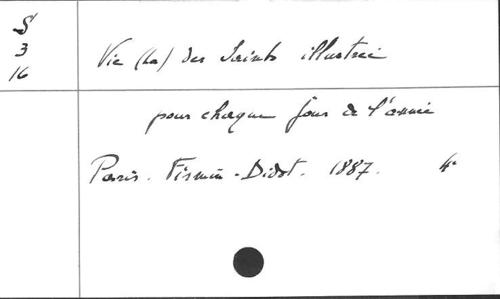 S
3
16
Vie (La) des Saints illustrée
pour chaque jour de l'année
Paris. Firmin-Didot. 1887. 4°